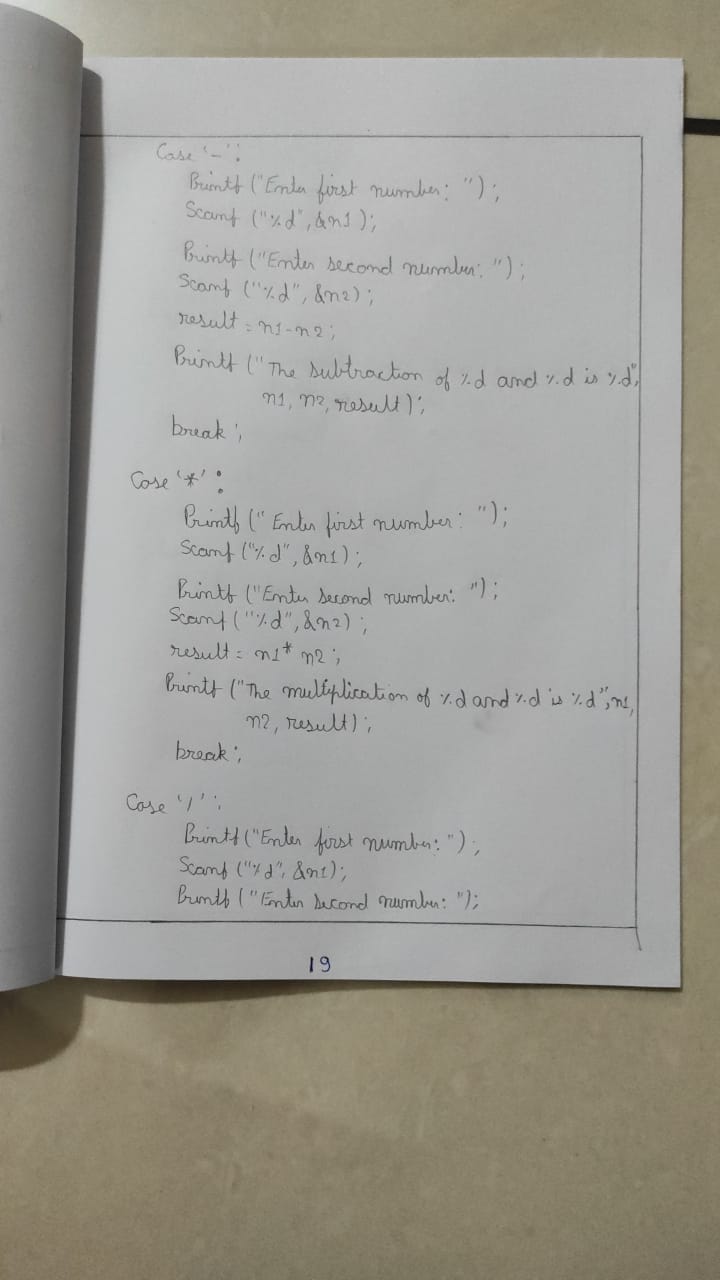 Case '-':
Printf ("Enter first number: ");
Scanf ("%d", &n1);
Printf ("Enter second number: ");
Scanf ("%d", &n2);
result = n1-n2;
Printf ("The subtraction of %d and %d is %d",
n1, n2, result);
break;
Case '*':
Printf (" Enter first number: ");
Scanf ("%d", &n1);
Printf ("Enter second number: ");
Scanf ("%d", &n2);
result = n1* n2;
Printf ("The multiplication of %d and %d is %d", n1,
n2, result);
break;
Case '/':
Printf ("Enter first number: ");
Scanf ("%d", &n1);
Printf ("Enter second number: ");
19